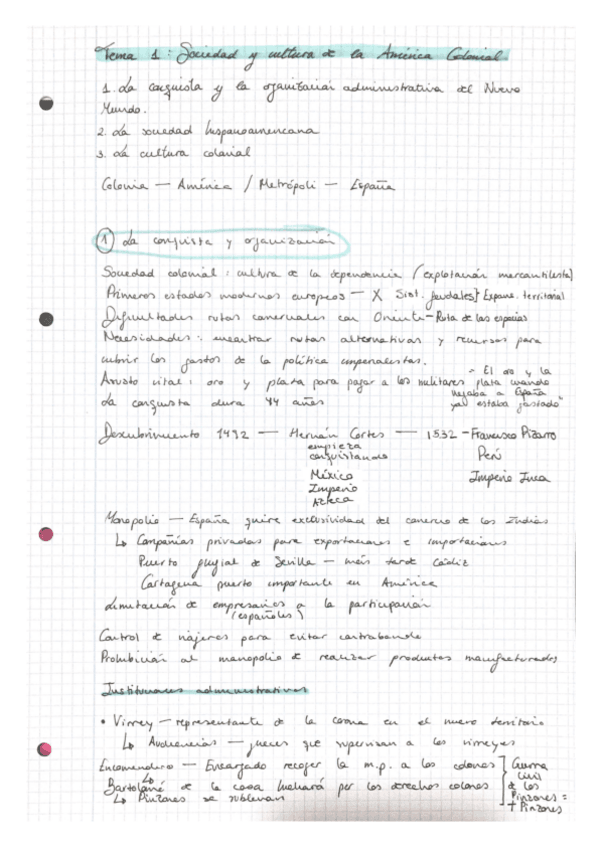 Tema 1: Sociedad y cultura de la América Colonial.
1. La conquista y la organización administrativa del Nuevo
Mundo.
2. La sociedad hispanoamericana
3. La cultura colonial
Colonia — América / Metrópoli — España
1 La conquista y organización
Sociedad colonial: cultura de la dependencia (explotación mercantilista)
Primeros estados modernos europeos — X Sist. feudales} Expans. territorial
Dificultades rutas comerciales con Oriente - Ruta de las especias
Necesidades: encontrar rutas alternativas y recursos para
cubrir los gastos de la política imperialistas.
vital: oro y plata para pagar a los militares
- "El oro y la
plata cuando
llegaba a España
ya estaba gastado"
La conquista dura 44 años
Descubrimiento 1492 — Hernán Cortes — 1532 - Francisco Pizarro
empieza
conquistando
México
Imperio
Azteca
Perú
Imperio Inca
Monopolio — España quiere exclusividad del comercio de las Indias
↳ Compañías privadas para exportaciones e importaciones
Puerto fluvial de Sevilla — más tarde Cádiz
Cartagena puerto importante en América
Limitación de empresarios a la participación
(españoles)
Control de viajeros para evitar contrabando
Prohibición al monopolio de realizar productos manufacturados
Instituciones administrativas
• Virrey — representante de la corona en el nuevo territorio
↳ Audiencias — jueces que supervisan a los virreyes
Encomendero — Encargado recoger la m.p. a los colonos
↳
Bartolomé de la casa luchará por los derechos colonos
↳ Pinzones se sublevan
Guerra
Civil
de los
Pinzones =
+ Pinzones